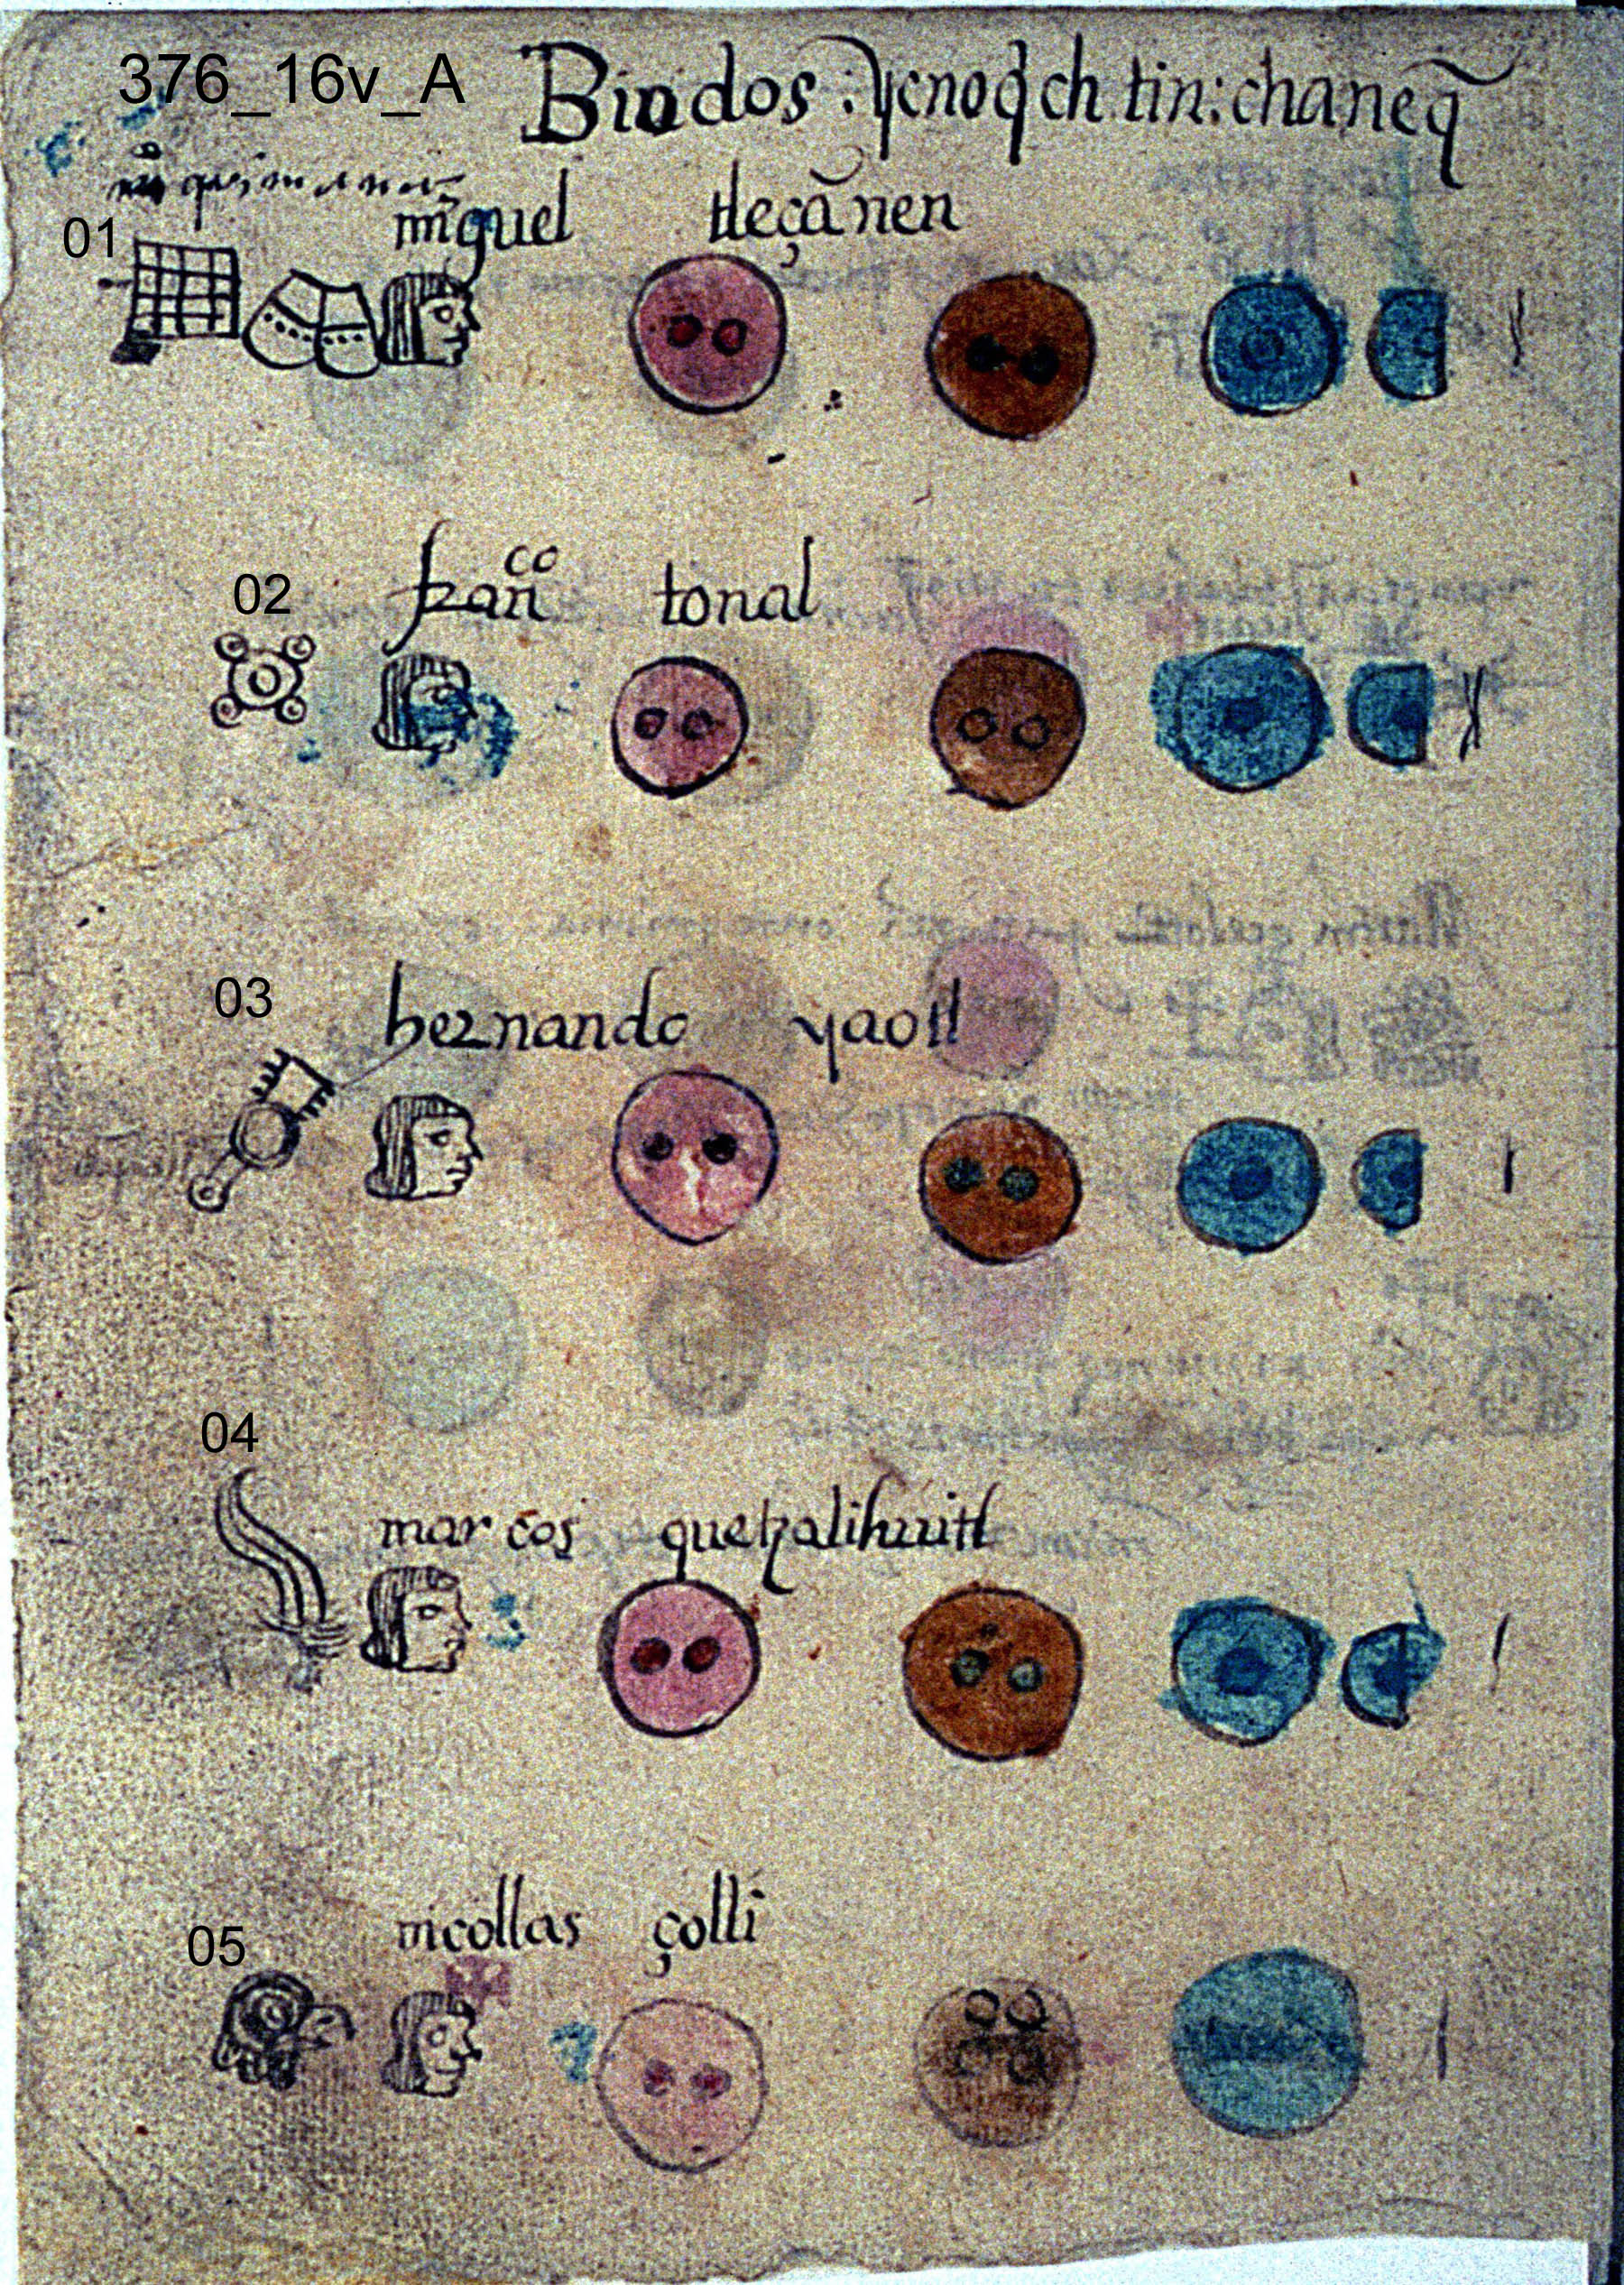 376_16v_A
Biudos : ycnoq̃ch tin: chaneq̃
01
miguel tleçānen
02
franco tonal
03
hernando yaotl
04
marcos quetzalihuitl
05
nicollas çolli